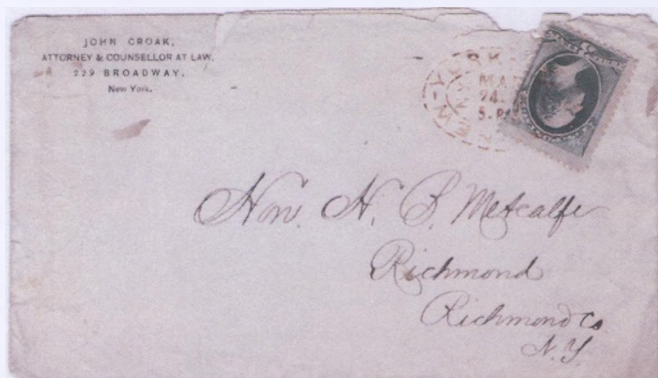 JOHN CROAK,
ATTORNEY & COUNSELLOR AT LAW,
229 BROADWAY,
New York.
24.
Hon. H. B. Metcalfe
Richmond
Richmond Co
N.Y.